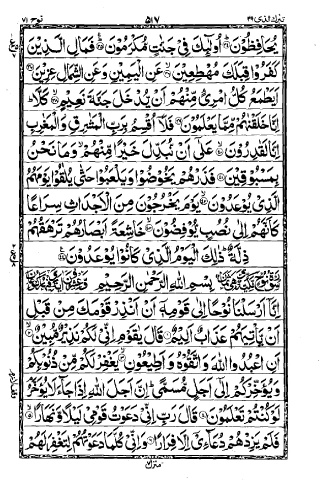 تبارك الذي ٢٩ ٥١٧ نوح ٧١
يُحَافِظُوْنَ اُولٰٓئِكَ فِيْ جَنّٰتٍ مُّكْرَمُوْنَ فَمَالِ الَّذِيْنَ
كَفَرُوْا قِبَلَكَ مُهْطِعِيْنَ عَنِ الْيَمِيْنِ وَعَنِ الشِّمَالِ عِزِيْنَ
اَيَطْمَعُ كُلُّ امْرِئٍ مِّنْهُمْ اَنْ يُّدْخَلَ جَنَّةَ نَعِيْمٍ كَلَّا
اِنَّا خَلَقْنٰهُمْ مِّمَّا يَعْلَمُوْنَ فَلَآ اُقْسِمُ بِرَبِّ الْمَشٰرِقِ وَالْمَغٰرِبِ
اِنَّا لَقٰدِرُوْنَ عَلٰٓى اَنْ نُّبَدِّلَ خَيْرًا مِّنْهُمْ وَمَا نَحْنُ
بِمَسْبُوْقِيْنَ فَذَرْهُمْ يَخُوْضُوْا وَيَلْعَبُوْا حَتّٰى يُلٰقُوْا يَوْمَهُمُ
الَّذِيْ يُوْعَدُوْنَ يَوْمَ يَخْرُجُوْنَ مِنَ الْاَجْدَاثِ سِرَاعًا
كَاَنَّهُمْ اِلٰى نُصُبٍ يُّوْفِضُوْنَ خَاشِعَةً اَبْصَارُهُمْ تَرْهَقُهُمْ
ذِلَّةٌ ذٰلِكَ الْيَوْمُ الَّذِيْ كَانُوْا يُوْعَدُوْنَ
بِسْمِ اللّٰهِ الرَّحْمٰنِ الرَّحِيْمِ
اِنَّآ اَرْسَلْنَا نُوْحًا اِلٰى قَوْمِهٖٓ اَنْ اَنْذِرْ قَوْمَكَ مِنْ قَبْلِ
اَنْ يَّاْتِيَهُمْ عَذَابٌ اَلِيْمٌ قَالَ يٰقَوْمِ اِنِّيْ لَكُمْ نَذِيْرٌ مُّبِيْنٌ
اَنِ اعْبُدُوا اللّٰهَ وَاتَّقُوْهُ وَاَطِيْعُوْنِ يَغْفِرْ لَكُمْ مِّنْ ذُنُوْبِكُمْ
وَيُؤَخِّرْكُمْ اِلٰٓى اَجَلٍ مُّسَمًّى اِنَّ اَجَلَ اللّٰهِ اِذَا جَآءَ لَا يُؤَخَّرُ
لَوْ كُنْتُمْ تَعْلَمُوْنَ قَالَ رَبِّ اِنِّيْ دَعَوْتُ قَوْمِيْ لَيْلًا وَّنَهَارًا
فَلَمْ يَزِدْهُمْ دُعَآءِيْٓ اِلَّا فِرَارًا وَاِنِّيْ كُلَّمَا دَعَوْتُهُمْ لِتَغْفِرَ لَهُمْ